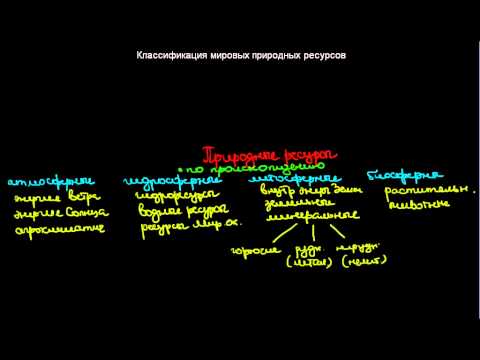 Классификация мировых природных ресурсов
Природные ресурсы
• по происхождению
атмосферные гидросферные литосферные биосферны
энергия ветра гидроресурсы внутр энерг Земли растительн.
энергия Солнца водные ресурсы земельные животные
агроклиматич ресурсы Мир ок. минеральные
горючие рудн. нерудн.
(метал) (немет)